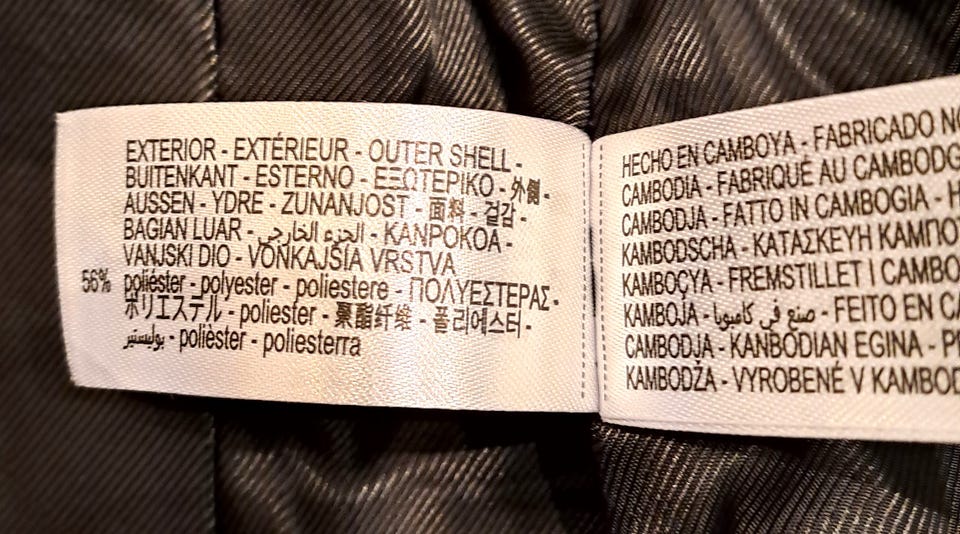 EXTERIOR - EXTÉRIEUR - OUTER SHELL -
BUITENKANT - ESTERNO - ΕΞΩΤΕΡΙΚΟ - 外側 -
AUSSEN - YDRE - ZUNANJOST - 面料 - 겉감 -
BAGIAN LUAR - الجزء الخارجي - KANPOKOA -
VANJSKI DIO - VONKAJSIA VRSTVA
56% poliéster - polyester - poliestere - ΠΟΛΥΕΣΤΕΡΑΣ -
ポリエステル - poliester - 聚酯纤维 - 폴리에스터 -
بوليستير - polièster - poliesterra
HECHO EN CAMBOYA - FABRICADO
CAMBODIA - FABRIQUÉ AU CAMBODG
CAMBODJA - FATTO IN CAMBOGIA -
KAMBODSCHA - ΚΑΤΑΣΚΕΥΗ ΚΑΜΠΟ
KAMBOÇYA - FREMSTILLET I CAMBO
KAMBOJA - صنع في كامبوديا - FEITO EN CA
CAMBODJA - KANBODIAN EGINA -
KAMBODŽA - VYROBENÉ V KAMBOD